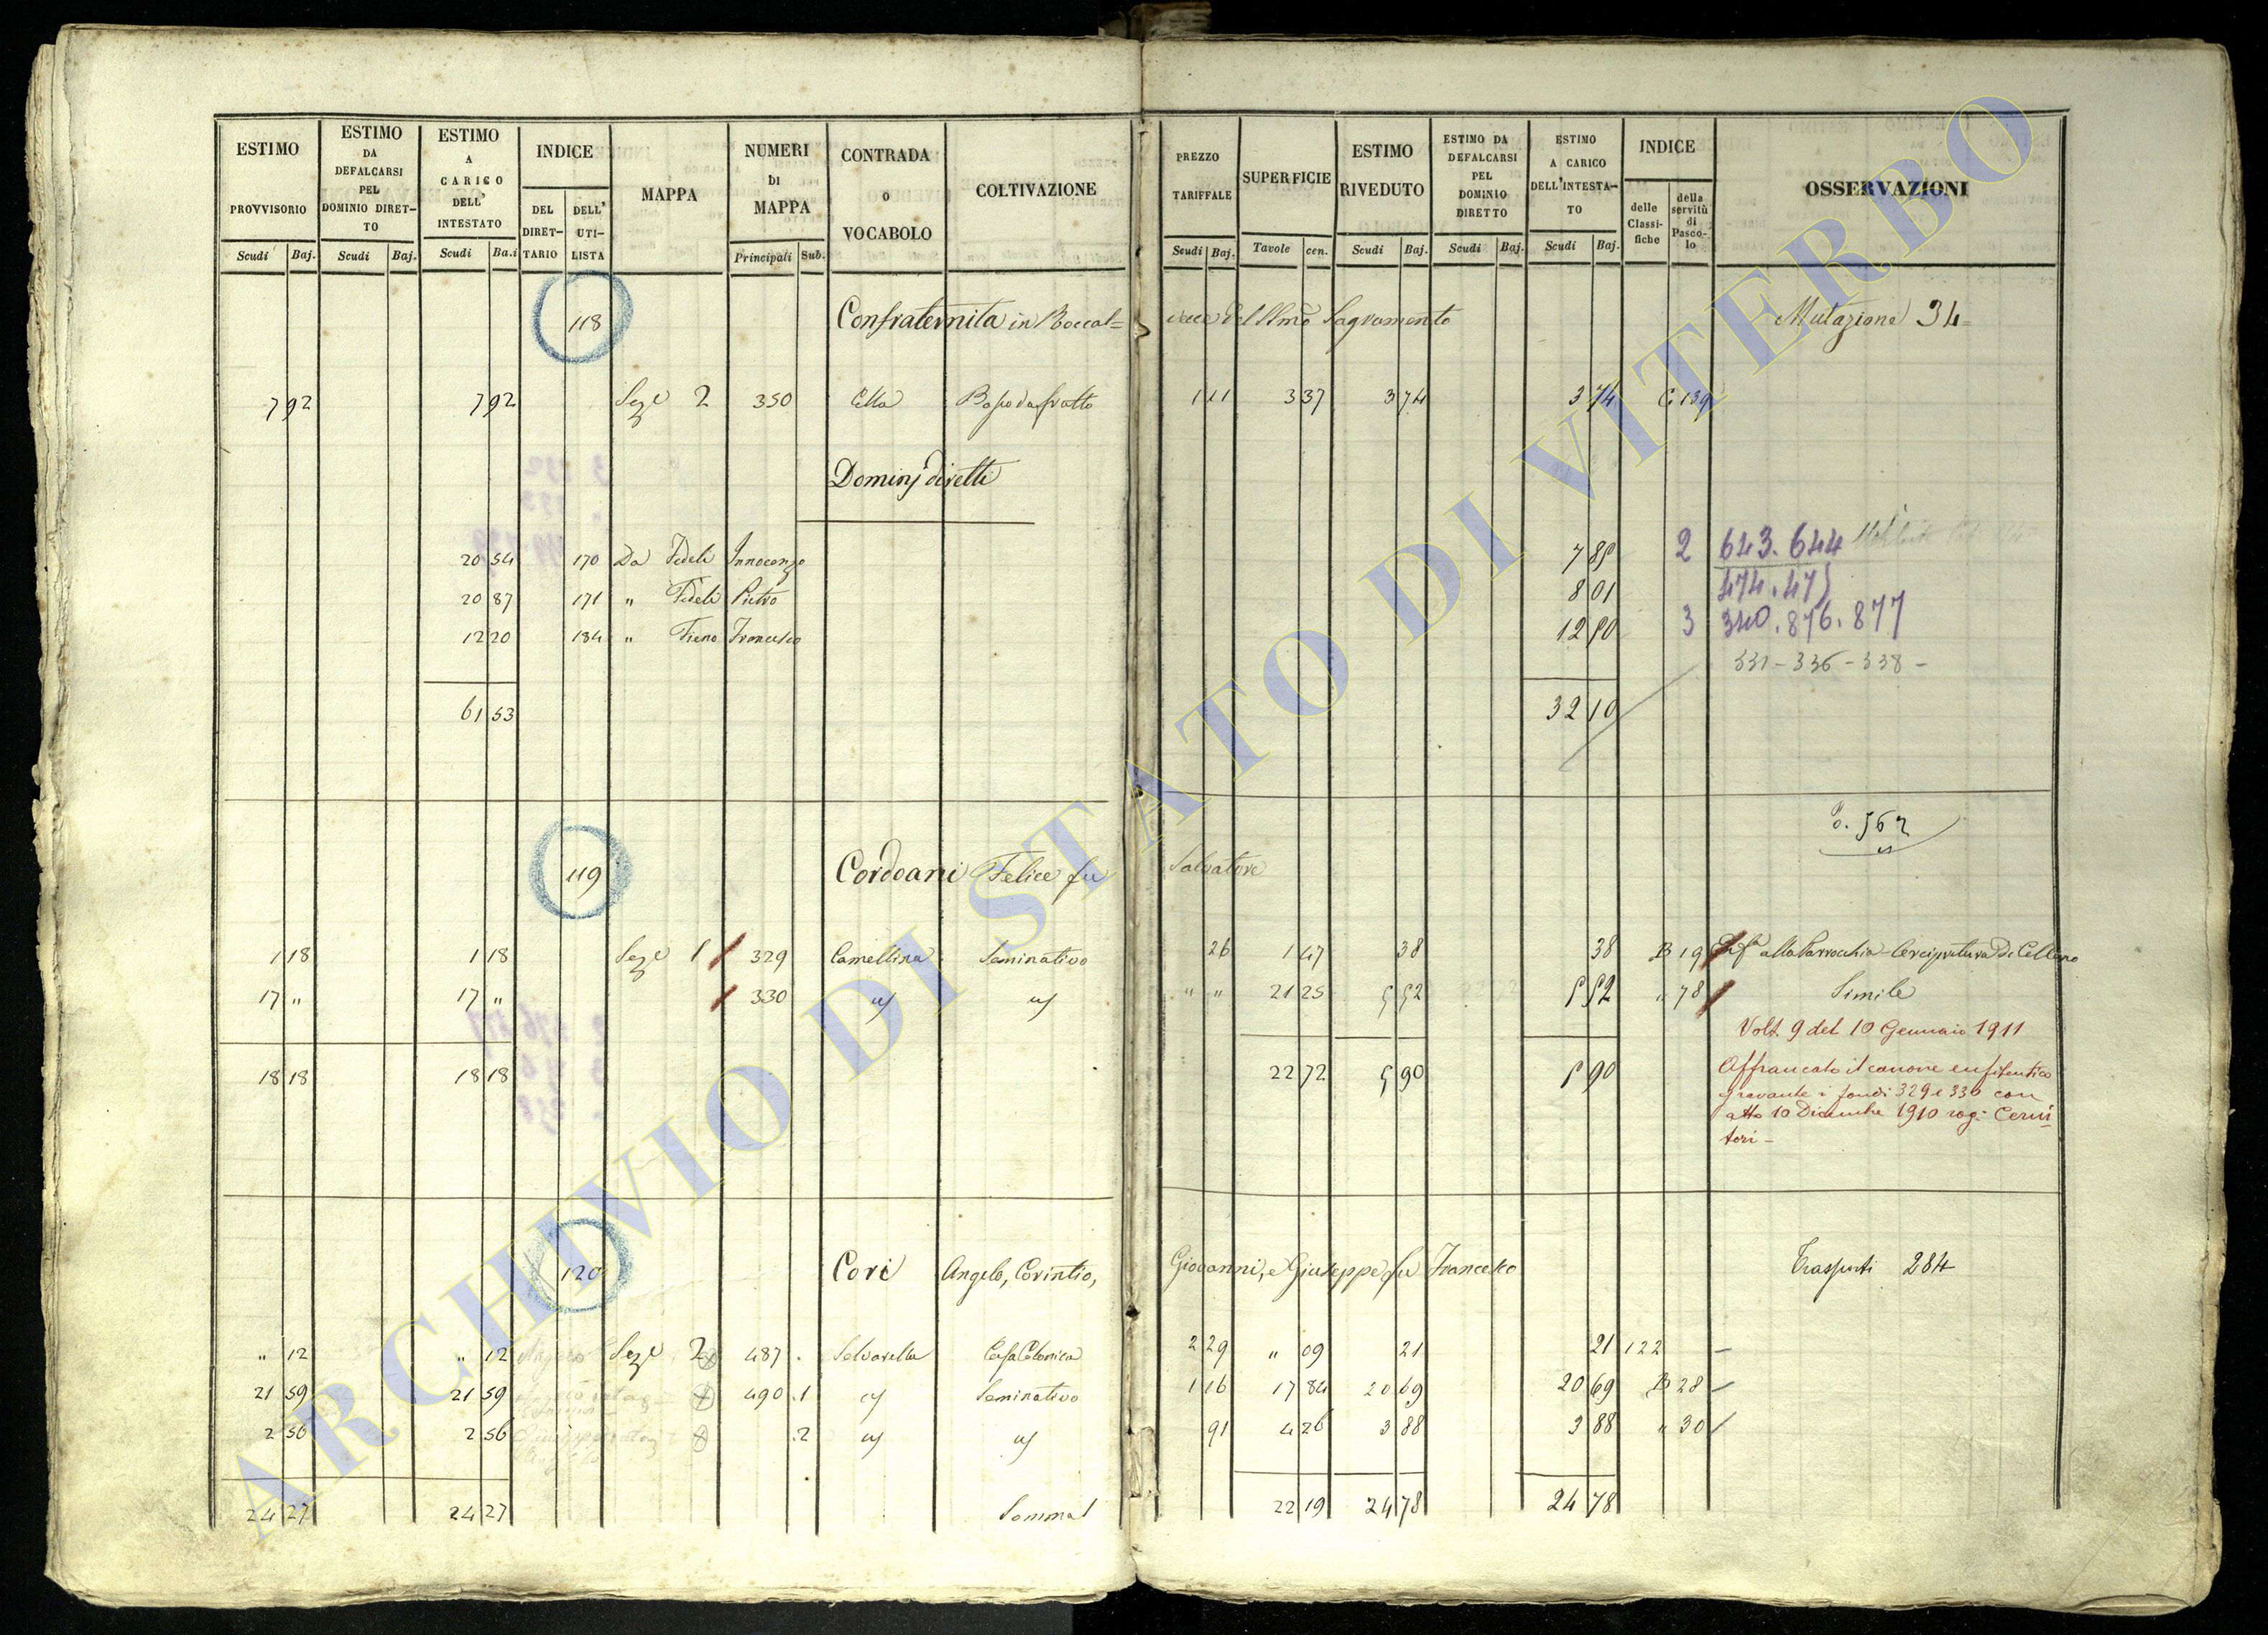 ESTIMO PROVVISORIO
ESTIMO DA DEFALCARSI PEL DOMINIO DIRETTO
ESTIMO A CARICO DELL' INTESTATO
INDICE
DEL DIRETTARIO
DELL' UTILISTA
MAPPA
NUMERI DI MAPPA
CONTRADA O VOCABOLO
COLTIVAZIONE
PREZZO TARIFFALE
SUPERFICIE
ESTIMO RIVEDUTO
ESTIMO DA DEFALCARSI PEL DOMINIO DIRETTO
ESTIMO A CARICO DELL'INTESTATO
INDICE
delle Classifiche
della servitù di Pascolo
OSSERVAZIONI
Scudi Baj. Scudi Baj. Scudi Ba.i Principali Sub. Scudi Baj. Tavole cen. Scudi Baj. Scudi Baj. Scudi Baj.
118 Confraternita in Roccal= del SSmo Sagramento Mutazione 34=
7 92 7 92 Seze 2 350 Cella Bosco da frutto 1 11 3 37 3 74 3 74 C 139
Dominj diretti
20 54 170 Da Fedeli Innocenzo 7 89 2 643.644
20 87 171 " Fedeli Pietro 8 01 474.475
12 20 184 " Fieno Francesco 12 90 3 340.876.877
331-336-338-
61 53 32 10
P. 562
119 Cordoani Felice fu Salvatore
1 18 1 18 Seze 1 329 Camellina Seminativo 26 1 47 38 38 B 19 alla Parrocchia Arcipretura di Celleno
17 " 17 " 330 " " 21 25 5 52 5 52 " 78 Simile
Volt. 9 del 10 Gennaio 1911
18 18 18 18 22 72 5 90 5 90 Affrancato il canone enfiteutico
gravante i fondi 329 e 330 con
atto 10 Dicembre 1910 rog:
120 Cori Angelo, Corintio, Giovanni, e Giuseppe fu Francesco Trasporti 284
" 12 " 12 Seze 2 487 Selvarella Casa Colonica 2 29 " 09 21 21 122
21 59 21 59 490 .1 Seminativo 1 16 17 84 20 69 20 69 B 28
2 56 2 56 .2 91 4 26 3 88 3 88 " 30
24 27 24 27 Somma 22 19 24 78 24 78
ARCHIVIO DI STATO DI VITERBO